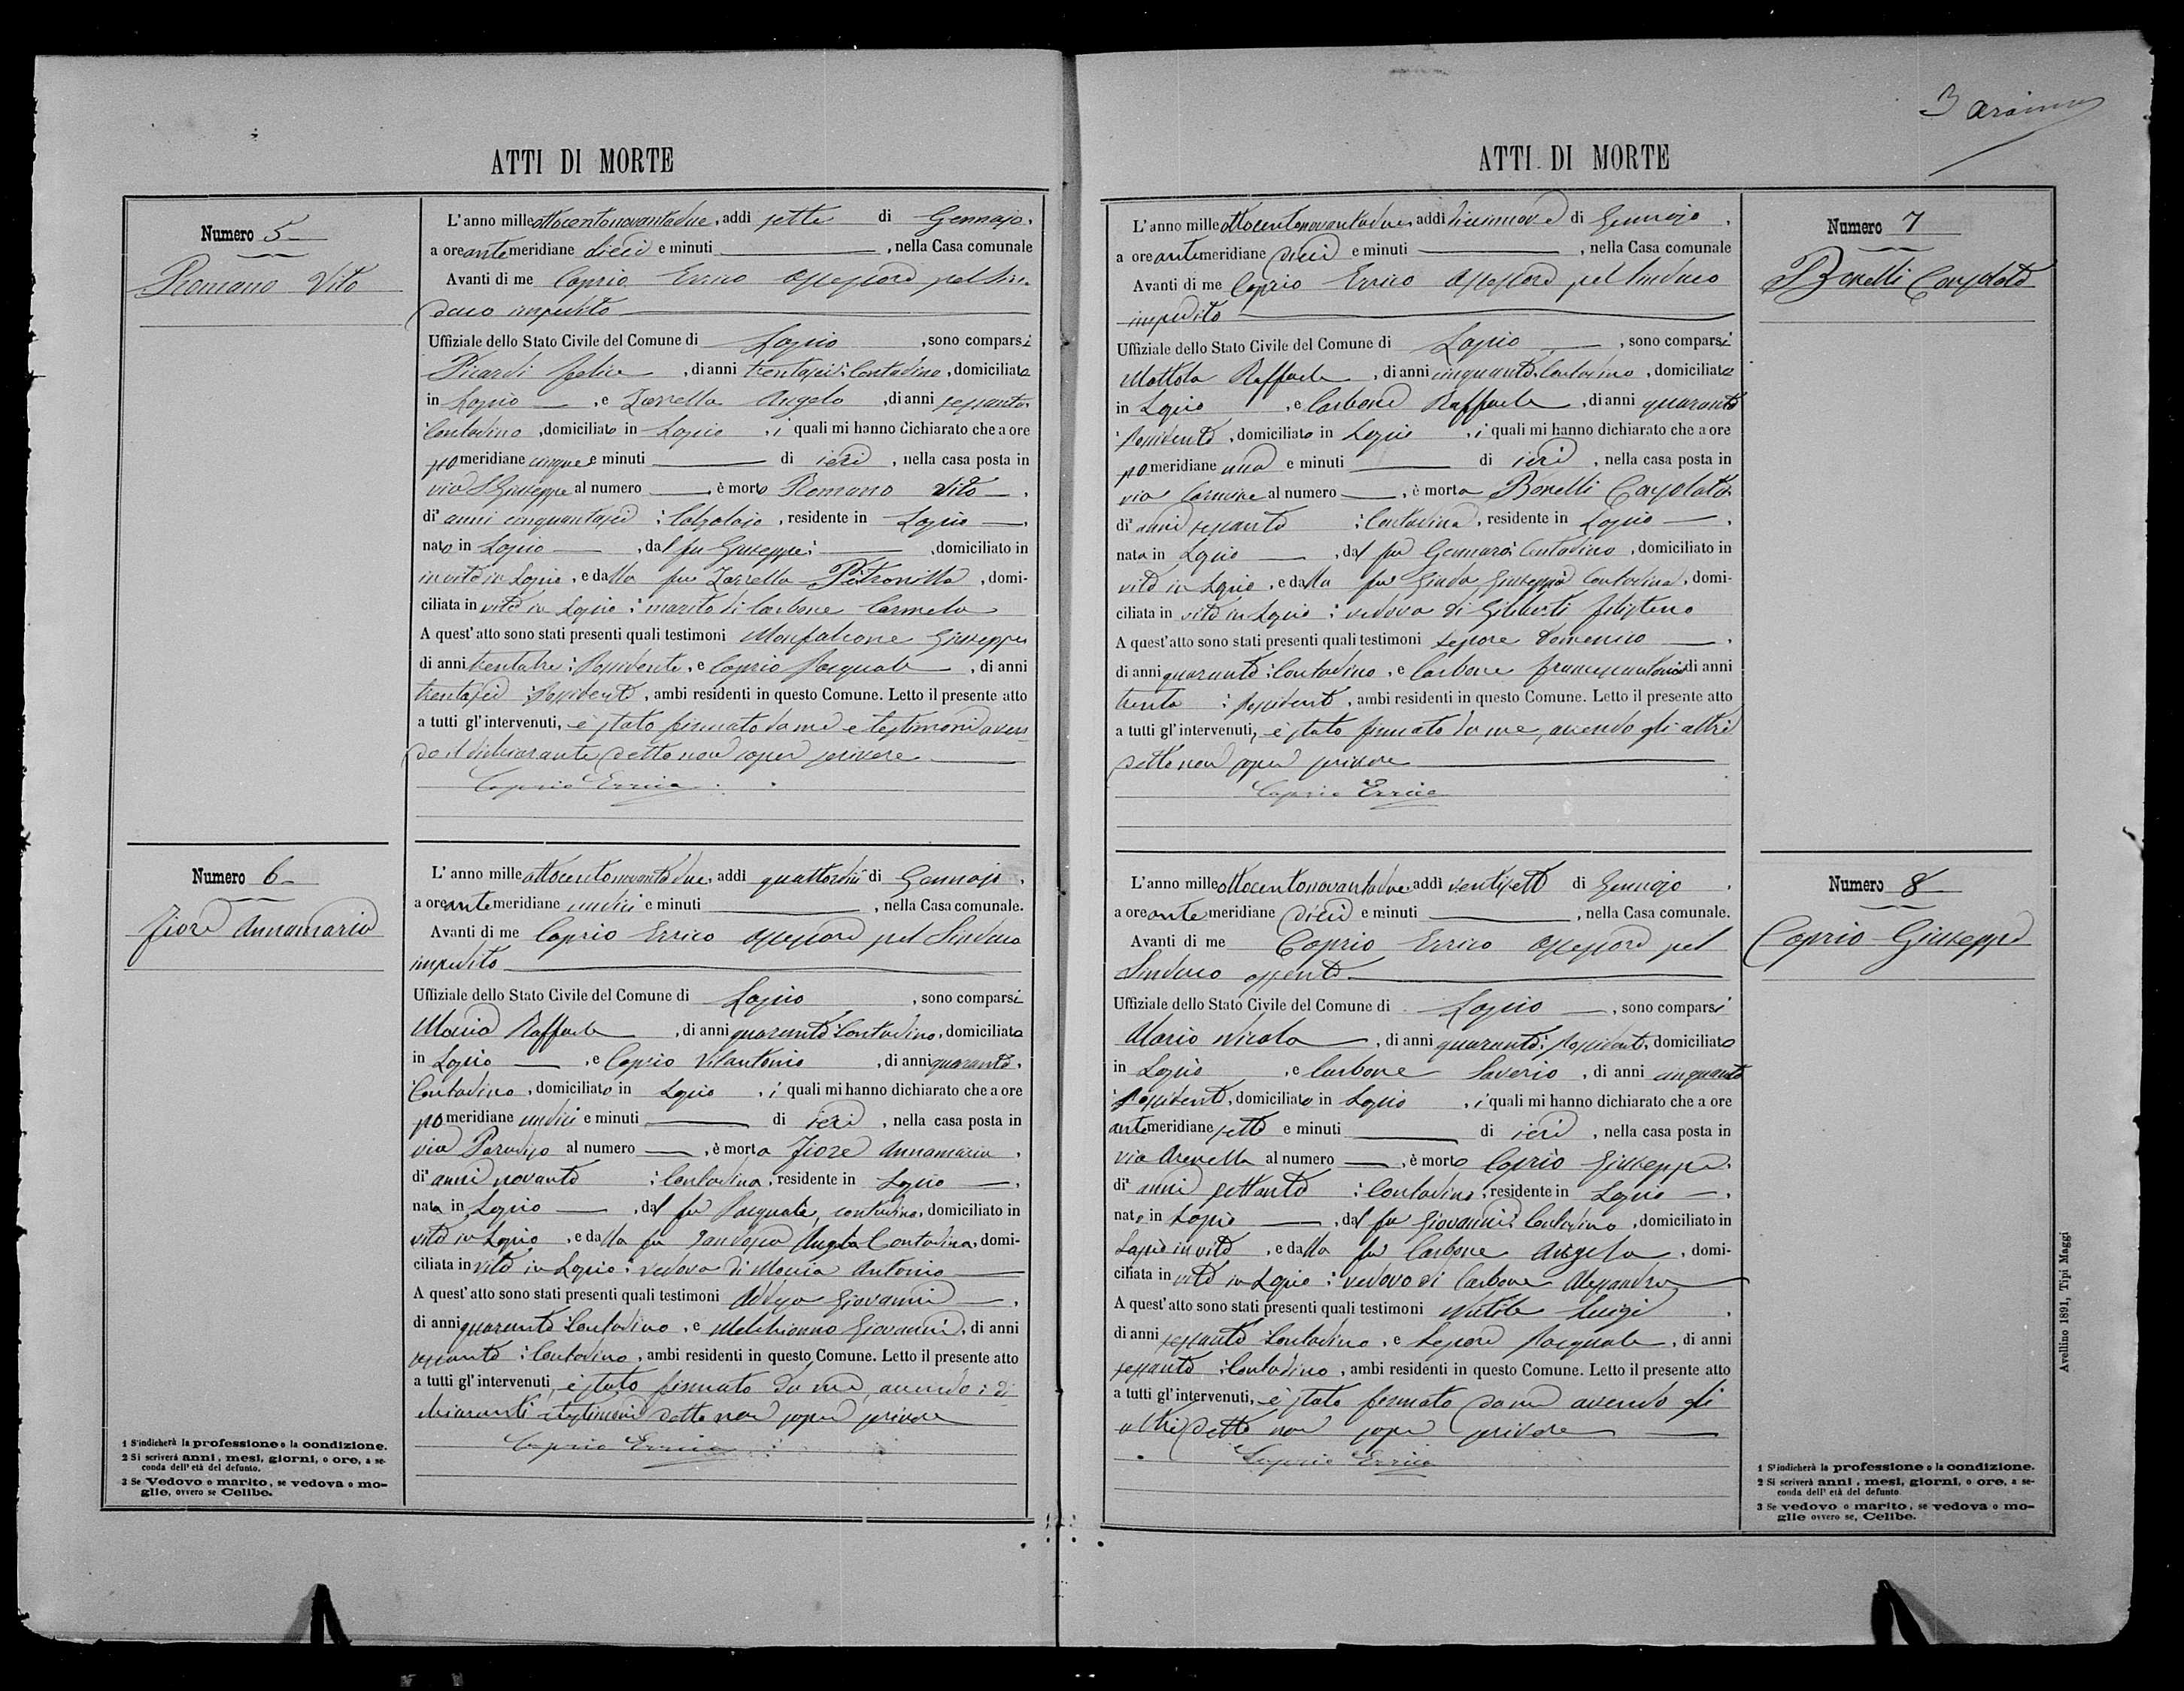 ATTI DI MORTE
Numero 5
Romano Vito
L'anno mille ottocentonovantadue, addì sette di Gennajo,
a ore antemeridiane dieci e minuti , nella Casa comunale
Avanti di me Caprio Errico Assessore pel Sin-
daco impedito
Uffiziale dello Stato Civile del Comune di Lapio , sono comparsi
Picardi Felice , di anni trentasei: Contadino, domiciliato
in Lapio , e Zarrella Angelo , di anni sessanta
Contadino, domiciliato in Lapio , i quali mi hanno dichiarato che a ore
pomeridiane cinque e minuti di ieri , nella casa posta in
via S. Giuseppe al numero , è morto Romano Vito ,
di anni cinquantasei : Calzolaio , residente in Lapio ,
nato in Lapio , dal fu Giuseppe: , domiciliato in
in vita in Lapio , e dalla fu Zarrella Petronilla , domi-
ciliata in vita in Lapio : marito di Carbone Carmela
A quest'atto sono stati presenti quali testimoni Monfalcone Giuseppe
di anni trentatre: Possidente, e Caprio Pasquale , di anni
trentasei : Possidente , ambi residenti in questo Comune. Letto il presente atto
a tutti gl'intervenuti, è stato firmato da me e testimoni aven-
do il dichiarante detto non saper scrivere
Caprio Errico
Numero 6
Fiore Annamaria
L'anno mille ottocentonovantadue, addì quattordici di Gennajo ,
a ore antemeridiane undici e minuti , nella Casa comunale.
Avanti di me Caprio Errico Assessore pel Sindaco
impedito
Uffiziale dello Stato Civile del Comune di Lapio , sono comparsi
Raffaele , di anni quaranta: Contadino, domiciliato
in Lapio , e Caprio Vitantonio , di anni quaranta,
Contadino , domiciliato in Lapio , i quali mi hanno dichiarato che a ore
pomeridiane undici e minuti di ieri , nella casa posta in
via Paradiso al numero , è morta Fiore Annamaria ,
di anni novanta : Contadina , residente in Lapio ,
nata in Lapio , dal fu Pasquale, contadino, domiciliato in
vita in Lapio , e dalla fu Angela Contadina, domi-
ciliata in vita in Lapio : vedova di Antonio
A quest'atto sono stati presenti quali testimoni Giovanni ,
di anni quaranta: Contadino , e Melchionno Giovanni, di anni
sessanta : Contadino , ambi residenti in questo Comune. Letto il presente atto
a tutti gl'intervenuti, è stato firmato da me, avendo i di
chiaranti e testimoni detto non saper scrivere
Caprio Errico
1 S'indicherà la professione o la condizione.
2 Si scriverà anni, mesi, giorni, o ore, a se-
conda dell'età del defunto.
3 Se Vedovo o marito, se vedova o mo-
glie, ovvero se Celibe.
3
ATTI DI MORTE
Numero 7
Bonelli Consolata
L'anno mille ottocentonovantadue, addì diciannove di Gennajo ,
a ore antemeridiane dieci e minuti , nella Casa comunale
Avanti di me Caprio Errico Assessore pel Sindaco
impedito
Uffiziale dello Stato Civile del Comune di Lapio , sono comparsi
Mottola Raffaele , di anni cinquanta, Contadino , domiciliato
in Lapio , e Carbone Raffaele , di anni quaranta
Possidente , domiciliato in Lapio , i quali mi hanno dichiarato che a ore
pomeridiane una e minuti di ieri , nella casa posta in
via Carmine al numero , è morta Bonelli Consolata
di anni sessanta : Contadina , residente in Lapio ,
nata in Lapio , dal fu Gennaro: Contadino , domiciliato in
vita in Lapio , e dalla fu Giuseppa Contadina , domi-
ciliata in vita in Lapio : vedova di Giliberti
A quest'atto sono stati presenti quali testimoni Lepore Domenico ,
di anni quaranta : Contadino , e Carbone Francescantonio di anni
trenta : Possidente , ambi residenti in questo Comune. Letto il presente atto
a tutti gl'intervenuti, è stato firmato da me, avendo gli altri
detto non saper scrivere
Caprio Errico
Numero 8
Caprio Giuseppe
L'anno mille ottocentonovantadue addì ventisette di Gennajo ,
a ore antemeridiane dieci e minuti , nella Casa comunale.
Avanti di me Caprio Errico Assessore pel
Sindaco assente
Uffiziale dello Stato Civile del Comune di Lapio , sono comparsi
Nicola , di anni quaranta: Possidente, domiciliato
in Lapio , e Carbone Saverio , di anni cinquanta
Possidente , domiciliato in Lapio , i quali mi hanno dichiarato che a ore
antemeridiane sette e minuti di ieri , nella casa posta in
via Arenella al numero , è morto Caprio Giuseppe,
di anni settanta : Contadino , residente in Lapio ,
nato in Lapio , dal fu Giovanni: Contadino , domiciliato in
Lapio in vita , e dalla fu Carbone Angela , domi-
ciliata in vita in Lapio : vedovo di Carbone Alessandra
A quest'atto sono stati presenti quali testimoni Luigi ,
di anni sessanta: Contadino , e Lepore Pasquale , di anni
sessanta : Contadino , ambi residenti in questo Comune. Letto il presente atto
a tutti gl'intervenuti, è stato firmato da me avendo gli
altri detto non saper scrivere
Caprio Errico
1 S'indicherà la professione o la condizione.
2 Si scriverà anni, mesi, giorni, o ore, a se-
conda dell'età del defunto.
3 Se vedovo o marito, se vedova o mo-
glie ovvero se, Celibe.
Avellino 1891, Tipi Maggi